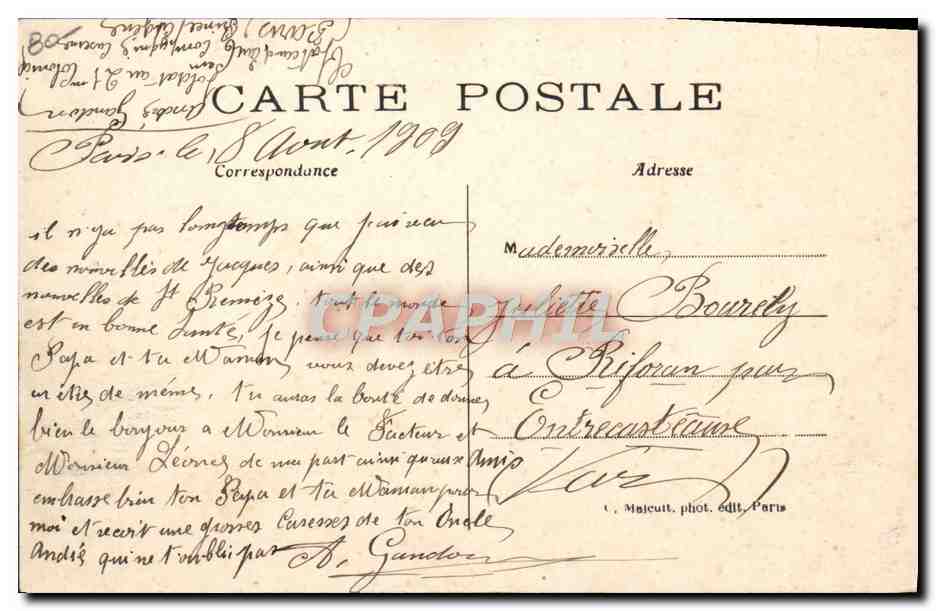 80
André Gandon
Soldat au 21e
Compagnie Caserne
Paris
CARTE POSTALE
Paris. le, 8 Aout. 1909
Correspondance
Adresse
il n'ya pas longtemps que j'ai recu
des nouvelles de Jacques, ainsi que des
nouvelles de St Remèze, tout le monde
est en bonne santé, je pense que toi ton
Papa et ta Maman, vous devez être
de même, tu auras la bonté de donner
bien le bonjour a Monsieur le Facteur et
Monsieur Léonce de ma part ainsi qu'aux Amis
embrasse bien ton Papa et ta Maman pour
moi et recoit une grosses Caresses de ton Oncle
André qui ne t'oublie pas A. Gandon
Mademoiselle
Juliette Bourely
à Riforan par
Entrecasteaux
Var
C. Malcuit, phot. édit, Paris
CPAPHIL